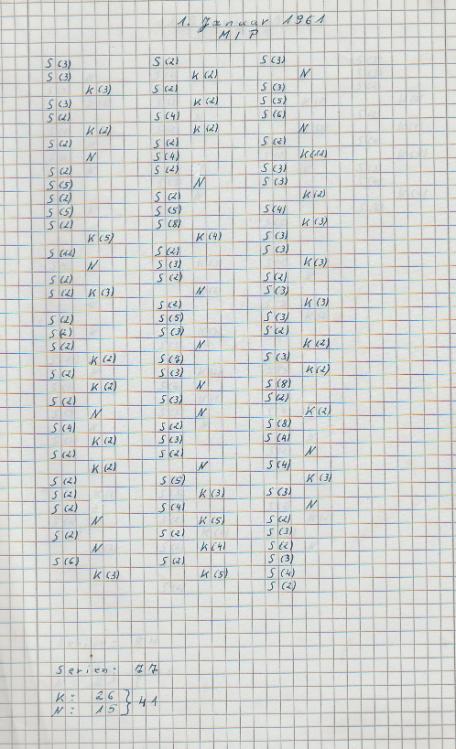 1. Januar 1961
M I P
S (3)
S (3)
K (3)
S (3)
S (2)
K (2)
S (2)
N
S (2)
S (5)
S (2)
S (5)
S (2)
K (5)
S (12)
N
S (2)
S (2) K (3)
S (2)
S (2)
S (2)
K (2)
S (2)
K (2)
S (2)
N
S (4)
K (2)
S (2)
K (2)
S (2)
S (2)
S (2)
N
S (2)
N
S (6)
K (3)
S (2)
K (2)
S (2)
K (2)
S (4)
K (2)
S (2)
S (4)
S (2)
N
S (2)
S (5)
S (8)
K (4)
S (2)
S (3)
S (2)
N
S (2)
S (5)
S (3)
N
S (7)
S (3)
N
S (3)
N
S (2)
S (3)
S (2)
N
S (5)
K (3)
S (4)
K (5)
S (2)
K (4)
S (2)
K (5)
S (3)
N
S (3)
S (5)
S (6)
N
S (2)
K (12)
S (3)
S (3)
K (2)
S (4)
K (3)
S (3)
S (3)
K (3)
S (2)
S (3)
K (3)
S (3)
S (2)
K (2)
S (3)
K (2)
S (8)
S (2)
K (2)
S (8)
S (4)
N
S (4)
K (3)
S (3)
N
S (2)
S (3)
S (2)
S (3)
S (4)
S (2)
Serien: 77
K: 26 } 41
N: 15